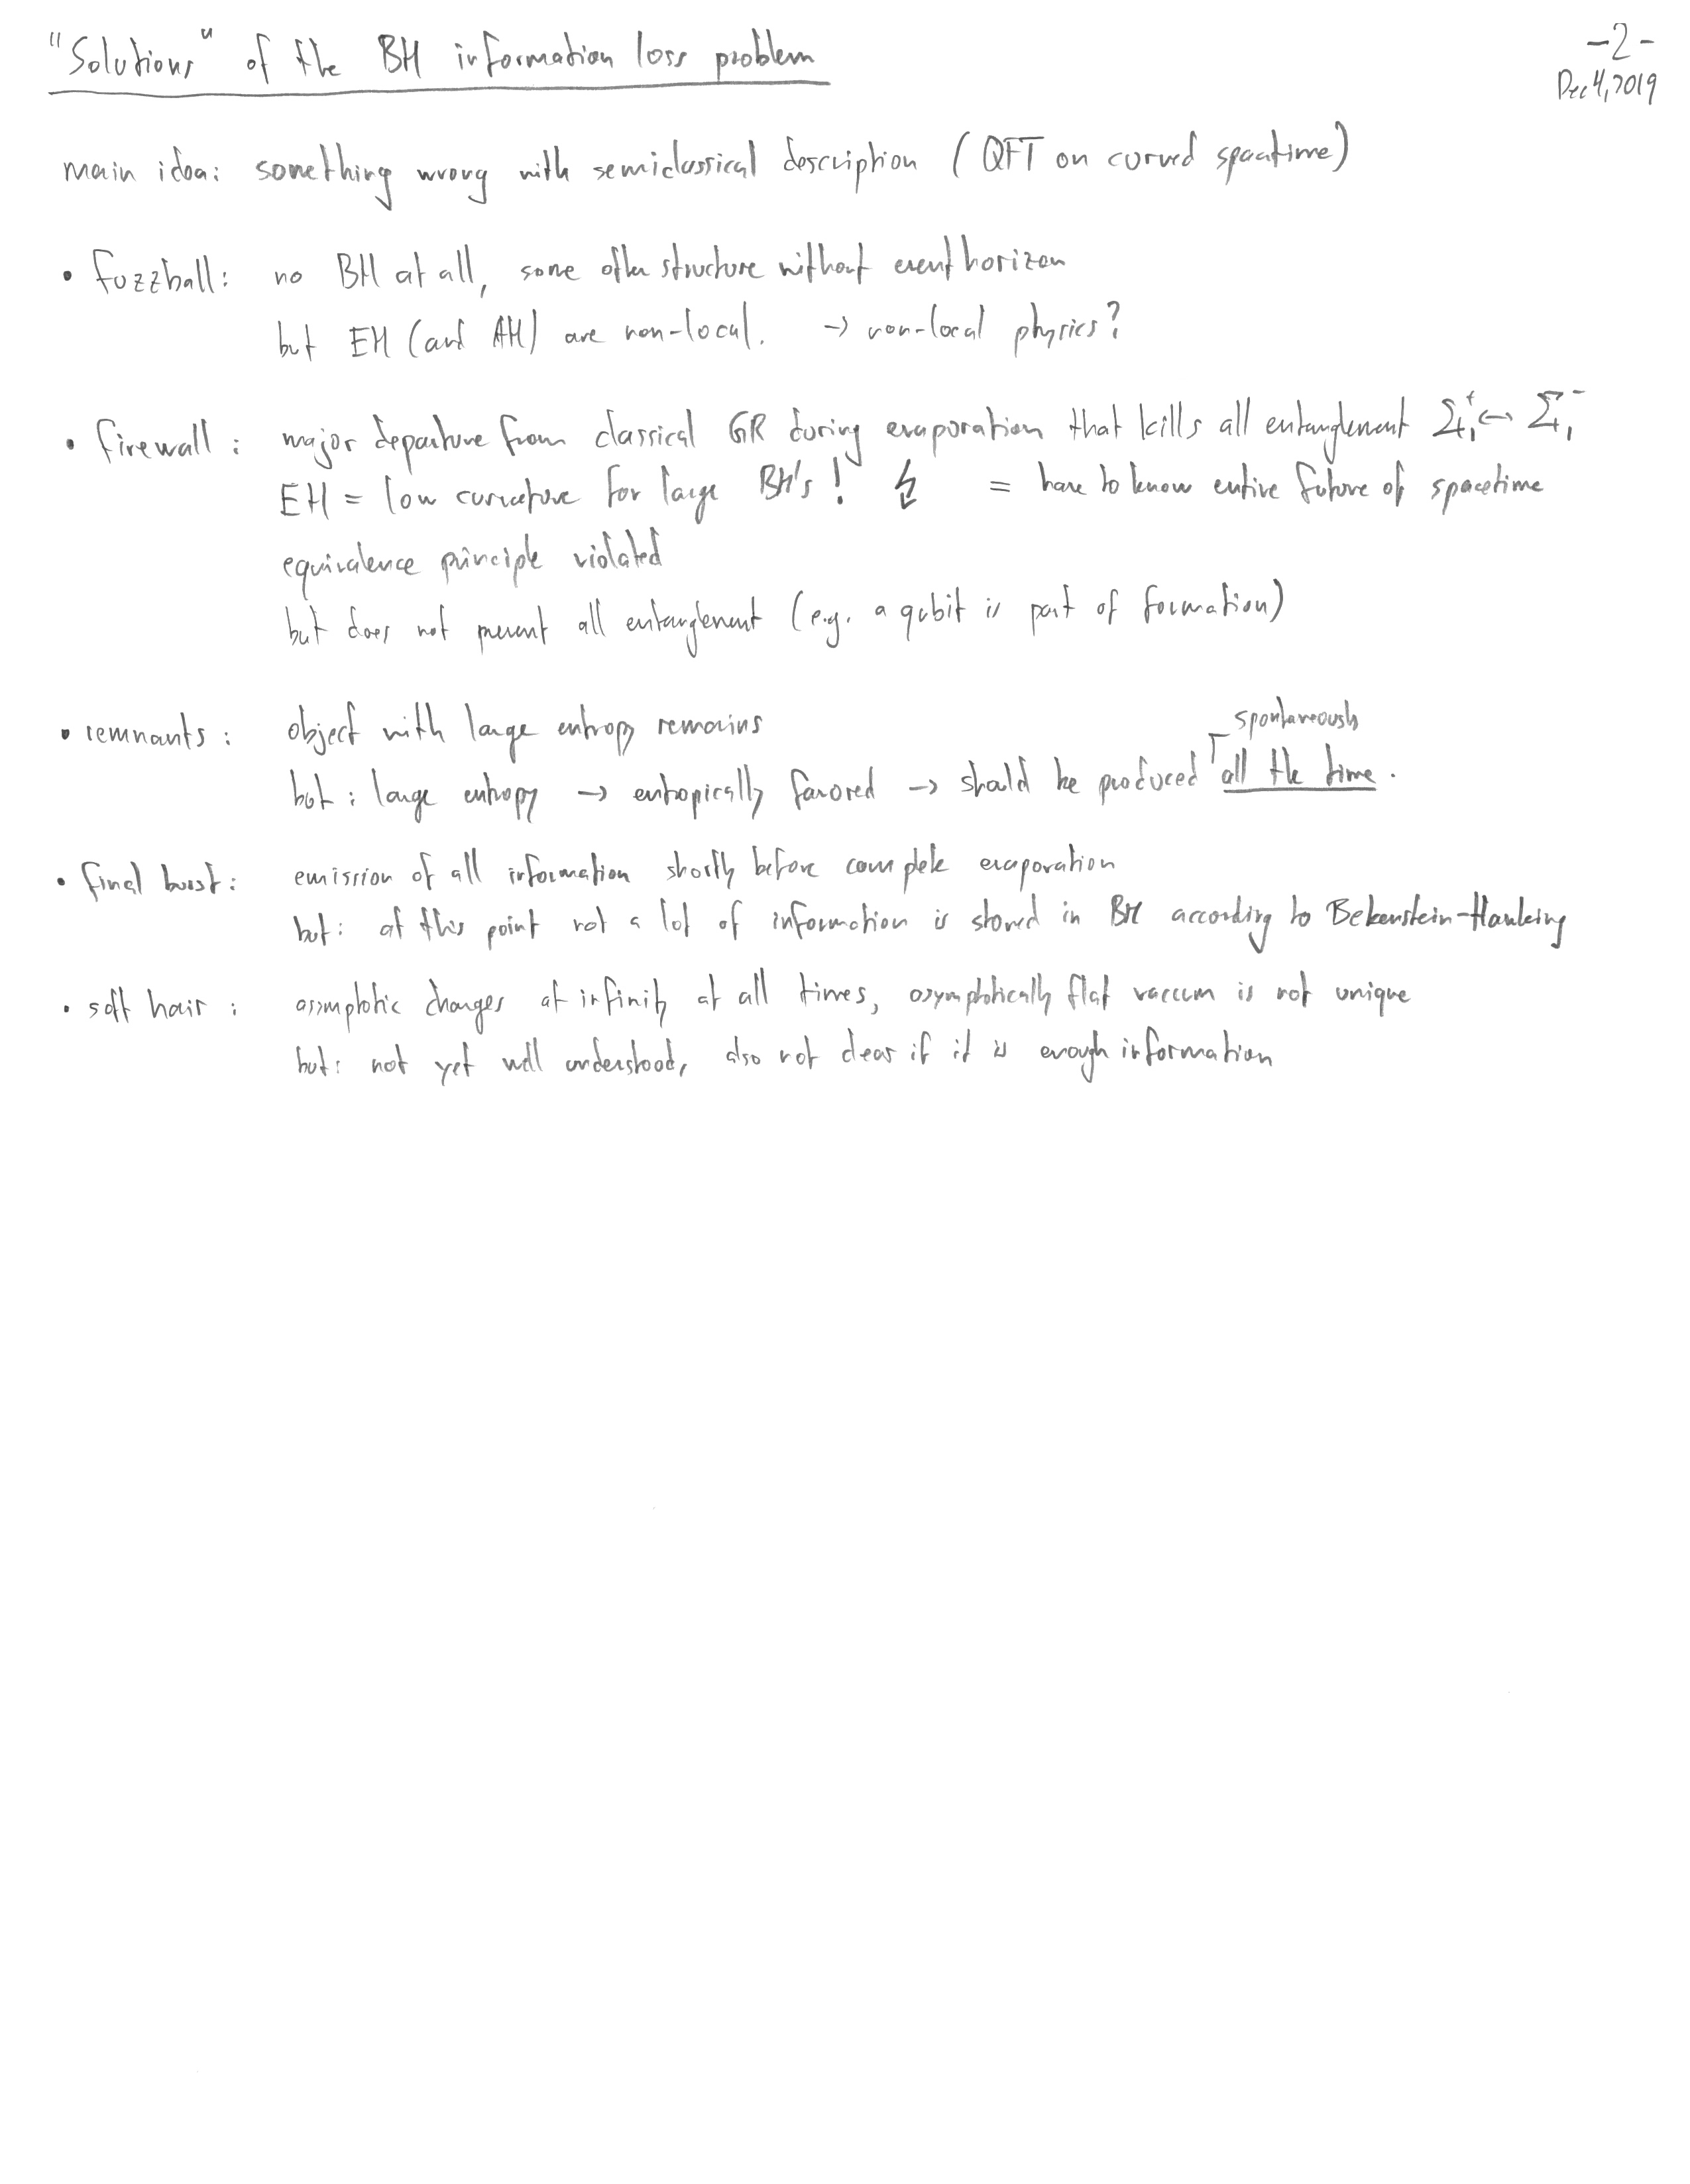 "Solutions" of the BH information loss problem
-2-
Dec 4, 2019
main idea: something wrong with semiclassical description (QFT on curved spacetime)
• fuzzball: no BH at all, some other structure without event horizon
but EH (and AH) are non-local. → non-local physics?
• firewall: major departure from classical GR during evaporation that kills all entanglement Σ₁⁺ ↔ Σ₁⁻
EH = low curvature for large BH's! ↯ = have to know entire future of spacetime
equivalence principle violated
but does not prevent all entanglement (e.g. a qubit is part of formation)
• remnants: object with large entropy remains
spontaneously
but: large entropy → entropically favored → should be produced all the time.
• final burst: emission of all information shortly before complete evaporation
but: at this point not a lot of information is stored in BH according to Bekenstein-Hawking
• soft hair: assmptotic changes at infinity at all times, asymptotically flat vaccum is not unique
but: not yet well understood, also not clear if it is enough information